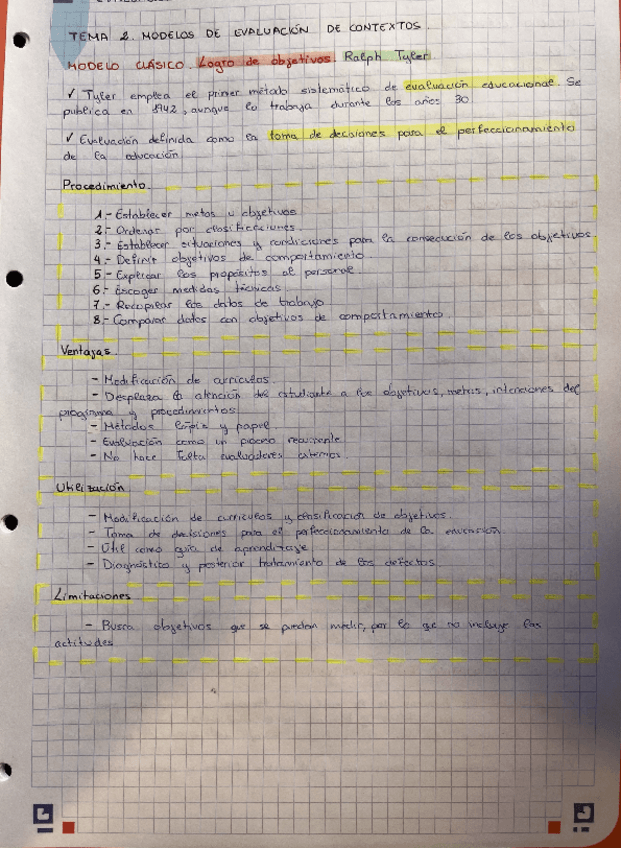 TEMA 2. MODELOS DE EVALUACIÓN DE CONTEXTOS.
MODELO CLÁSICO. Logro de objetivos. Ralph Tyler
✓ Tyler emplea el primer método sistemático de evaluación educacional. Se
publica en 1942, aunque lo trabaja durante los años 30
✓ Evaluación definida como la toma de decisiones para el perfeccionamiento
de la educación
Procedimiento.
1.- Establecer metas u objetivos
2.- Ordenar por clasificaciones.
3.- Establecer situaciones y condiciones para la consecución de los objetivos
4.- Definir objetivos de comportamiento.
5.- Explicar los propósitos al personal
6.- Escoger medidas técnicas.
7.- Recopilar los datos de trabajo
8.- Comparar datos con objetivos de comportamiento.
Ventajas.
- Modificación de currículos.
- Desplaza la atención del estudiante a los objetivos, metas, intenciones del
programa y procedimientos
- Métodos lápiz y papel.
- Evaluación como un proceso recurrente
- No hace falta evaluadores externos.
Utilización
- Modificación de currículos y clasificación de objetivos.
- Toma de decisiones para el perfeccionamiento de la educación
- Útil como guía de aprendizaje
- Diagnóstico y posterior tratamiento de los defectos
Limitaciones
- Busca objetivos que se puedan medir, por lo que no incluye las
actitudes